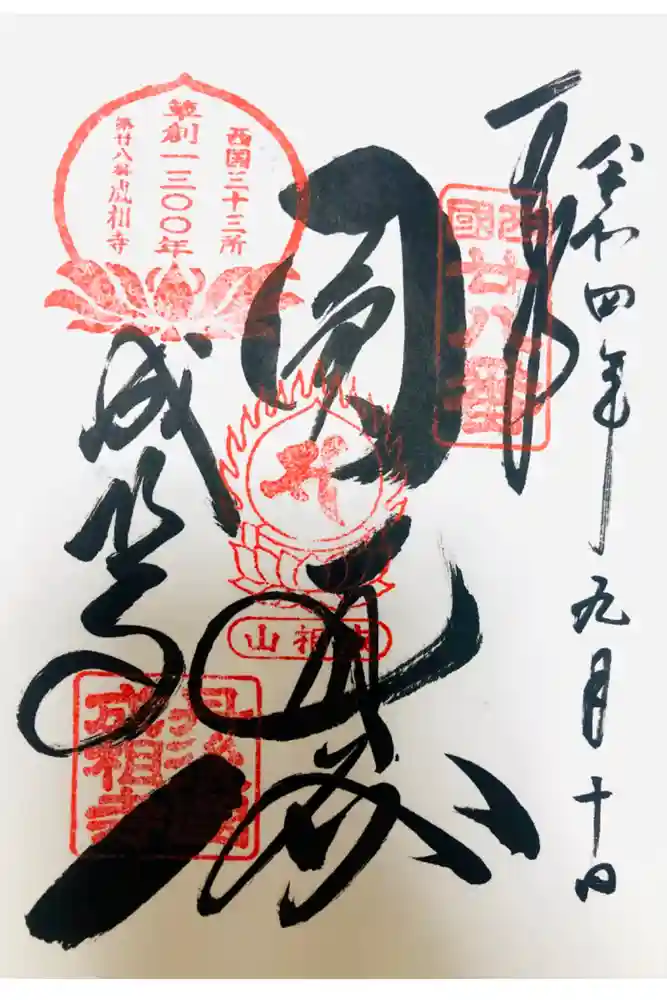 令和四年九月十日
奉拝
西國
廿八番
西国三十三所
草創一三〇〇年
第廿八番成相寺
成相山
成相寺
成相寺